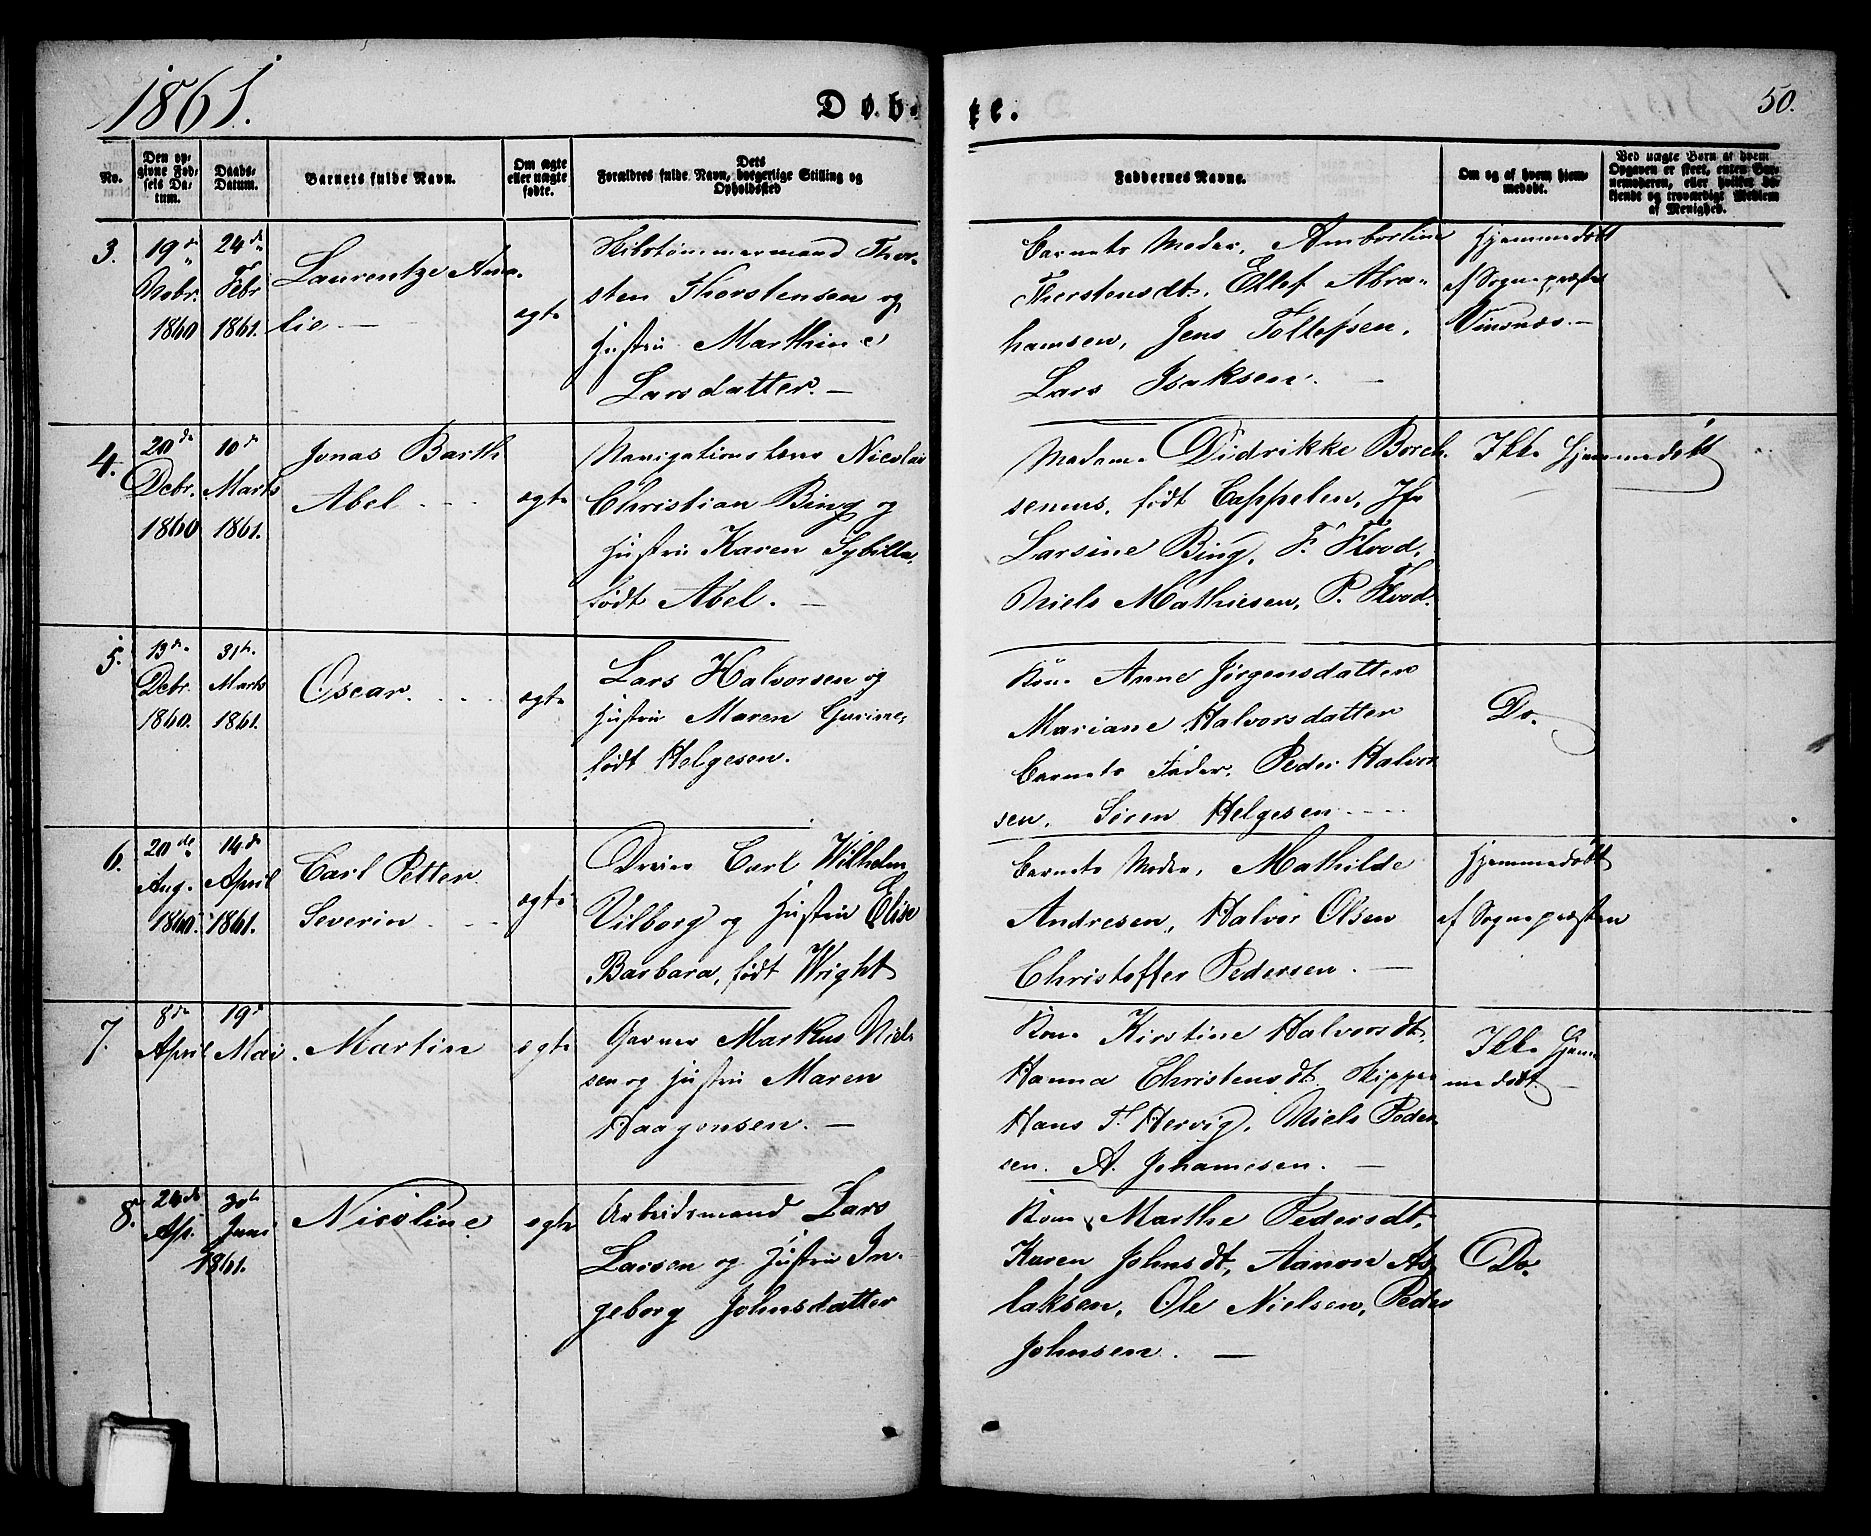 1861.
Døb-
te.
50.
No.
Den op-
givne Fød-
sels Da-
tum.
Daabs-
Datum.
Barnets fulde Navn.
Om ægte
eller uægte
fødte.
Dets
Forældres fulde Navn, borgerlige Stilling og
Opholdssted
Faddernes Navne.
Om og af hvem hjem-
medøbt.
Ved uægte Børn af hvem
Opgaven er skeet, enten Bar-
nemoderen, eller hvilket be-
kjendt og troværdigt Medlem
af Menighed.
3.
19de
Nobr.
1860
24de
Febr
1861.
Laurentze Ama-
lie
ægte
Skibstømmermand Thor-
sten Thorstensen og
Hustru Marthine
Larsdatter.
Barnets Moder, Amborline
Thorstensdt. Ellef Abra-
hamsen, Jens Tollefsen.
Lars Isaksen.
Hjemmedøbt
af Sognepræst
Vinsnes.
4.
20de
Debr.
1860
10de
Marts
1861.
Jonas Barth
Abel
ægte
Navigationslærer Nicolai
Christian Bing og
Hustru Karen Sybilla,
født Abel.
Madame Didrikke Borch-
senius, født Cappelen, Jfr
Larsine Bing, F. Flood,
Niels Mathiesen, P. Flood.
Ikke Hjemmedøbt
5.
13de
Debr.
1860.
31te
Marts
1861.
Oscar.
ægte
Lars Halvorsen og
Hustru Maren Gurine,
født Helgesen.
Kone Anne Jørgensdatter
Mariane Halvorsdatter
Barnets Fader. Peder Halvor
sen. Søren Helgesen
Do.
6.
20de
Aug.
1860.
14de
April
1861.
Carl Petter
Severin
ægte
Dreier Carl Wilhelm
Vilborg og Hustru Elise
Barbara, født Wright
Barnets Moder, Mathilde
Andresen, Halvor Olsen
Christoffer Pedersen.
Hjemmedøbt
af Sognepræsten
7.
8de
April
19de
Mai.
Martin
ægte
Garver Markus Niel-
sen og Hustru Maren
Haagensen.
Kone Kirstine Halvorsdt.
Hanna Christensdt. Skipper
Hans T. Hervig, Niels Peder-
sen. A. Johannesen.
Ikke Hjem-
medøbt.
8.
24de
Ap.
30te
Juni
1861.
Nicoline
ægte
Arbeidsmand Lars
Larsen og Hustru In-
geborg Johnsdatter
Kone Marthe Pedersdt,
Karen Johnsdt, Aanon As-
laksen, Ole Nielsen, Peder
Johnsen.
Do.